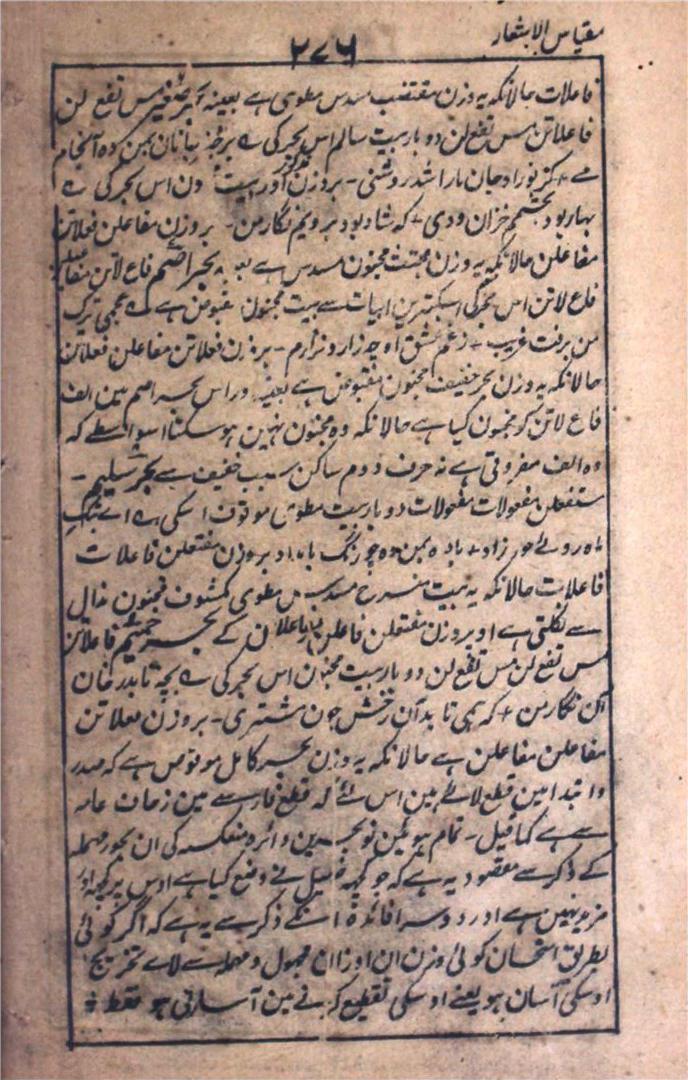 مقیاس الاشعار
۲۷۶
فاعلات حالانکہ یہ وزن مقتضب مسدس مطوی ہے بعینہ بحر صغیر مس تفع لن
فاعلاتن مس تفع لن دو بار بیت سالم اس بحر کی ہے
مے + کز نور او جان ما را شد روشنی - بر وزن اس بحر کی ہے
بہار بود بچشمم خزان و دی + کہ شاد بود برویم نگار من - بر وزن مفاعلن فعلاتن
مفاعلن حالانکہ یہ وزن مجتث مخبون مسدس ہے بحر اصم فاع لاتن مفاعیلن
فاع لاتن اس بحر کی ابیات سے بیت مخبون مقبوض ہے عجمی ترک
من برفت غریب + زغم عشق او چہ زار و نزارم - بر وزن فعلاتن مفاعلن فعلاتن
حالانکہ یہ وزن بحر خفیف مخبون مقبوض ہے بعینہ اور اس بحر اصم مین الف
فاع لاتن کو مخبون کیا ہے حالانکہ وہ مخبون نہین ہو سکتا اسواسطے کہ
وہ الف مفروقی ہے نہ حرف دوم ساکن سبب خفیف سے بحر سلیم -
مستفعلن مفعولات مفعولات دو بار بیت مطوی موقوف اسکی ہے اے
ماہ روے حور زاد + بادہ بمن دہ چو رنگ بامداد بر وزن مفتعلن فاعلات
فاعلات حالانکہ یہ بیت منسرح مسدس مطوی مکشوف مخبون مذال
سے نکلتی ہے او بر وزن مفتعلن فاعلن مفاعلان کے بحر حمیم فاعلاتن
مس تفع لن مس تفع لن دو بار بیت مخبون اس بحر کی ہے بچہ تابد
آن نگار من + کہ ہمی تابد آن رخش چون مشتری - بر وزن فعلاتن
مفاعلن مفاعلن ہے حالانکہ یہ وزن بحر کامل موقوص ہے کہ صدر
و ابتدا مین قطع لائے ہین اس لئے کہ قطع فارسے مین زحاف عامہ
سے ہے کما قیل - تمام ہوئین نو بحرین دائرہ منعکسہ کی ان بحور مہملہ
کے ذکر سے مقصود یہ ہے کہ جو کچھ نے وضع کیا ہے اوس پر کچھ اور
مزید نہین ہے اور دوسرا فائدہ انکے ذکر سے یہ ہے کہ اگر کوئی
بطریق امتحان کوئی وزن ان اوزان مجہول و مہملہ سے لاے تخریج
اوسکی آسان ہو یعنے اوسکی تقطیع کرنے مین آسانی ہو فقط